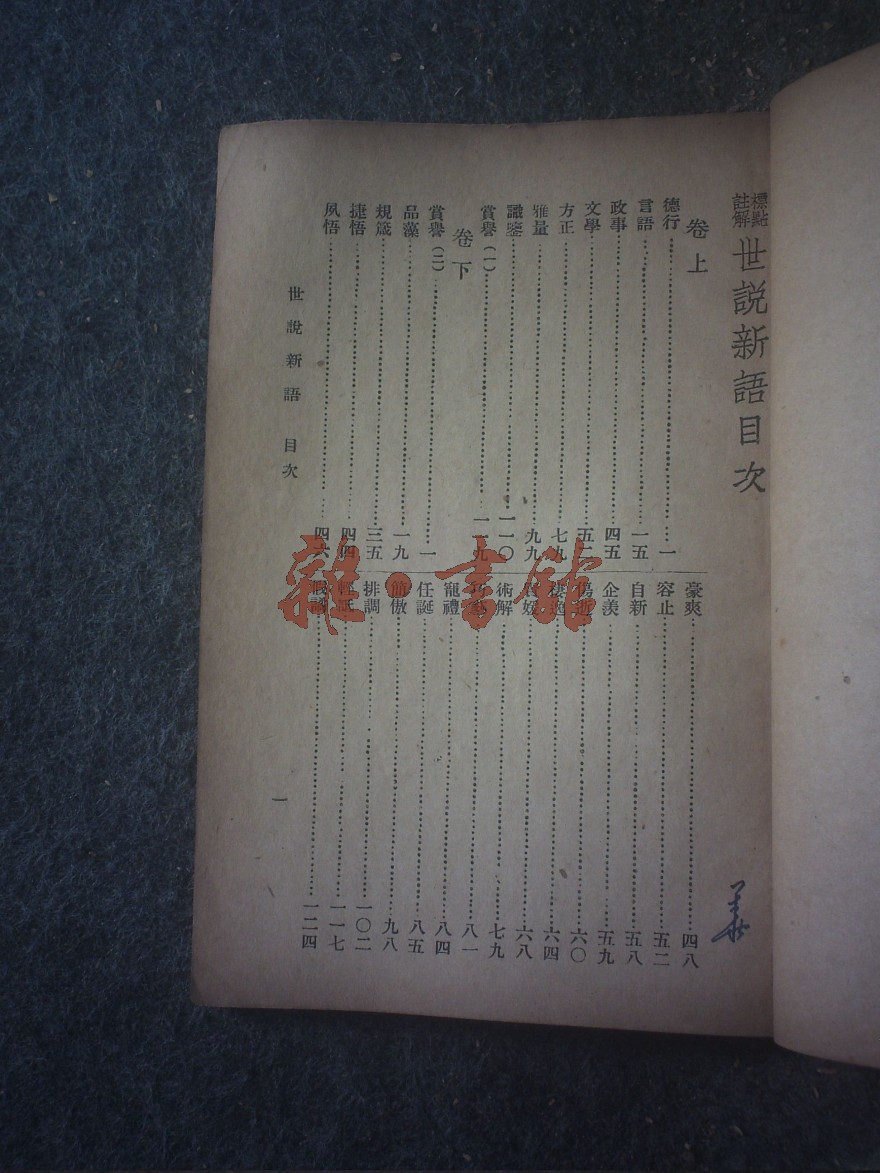 標點註解 世説新語目次
卷上
德行 一
言語 一五
政事 四五
文學 五二
方正 七九
雅量 九九
識鑒 一一〇
賞譽(一) 一一九
卷下
賞譽(二) 一
品藻 一九
規箴 三五
捷悟 四四
夙悟 四六
豪爽 四八
容止 五二
自新 五八
企羨 五九
傷逝 六〇
棲逸 六四
賢媛 六八
術解 七九
巧藝 八一
寵禮 八四
任誕 八五
簡傲 九八
排調 一〇二
輕詆 一一七
假譎 一二四
世說新語 目次
一
雜·書館